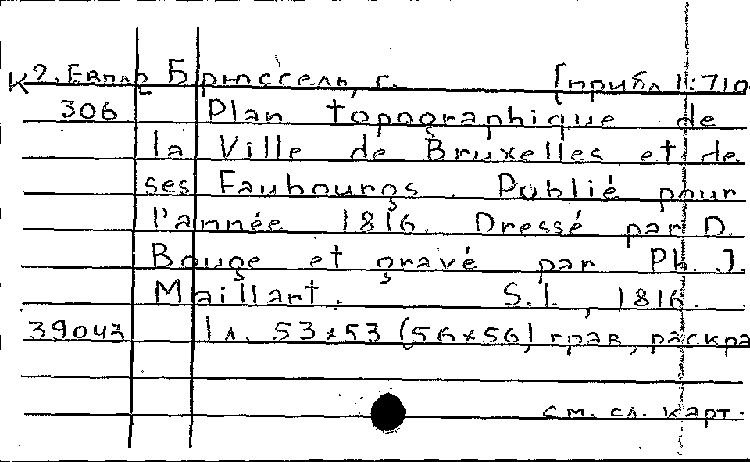 К2.Евр/2 Брюссель, г. [прибл 1:710
306 Plan topographique de
la Ville de Bruxelles et de
ses Faubourgs. Publié pour
l'année 1816. Dressé par D.
Bouge et gravé par Ph. J.
Maillart. S.l., 1816.
39043 1 л. 53x53 (56x56) грав, раскра
см. сл. карт.